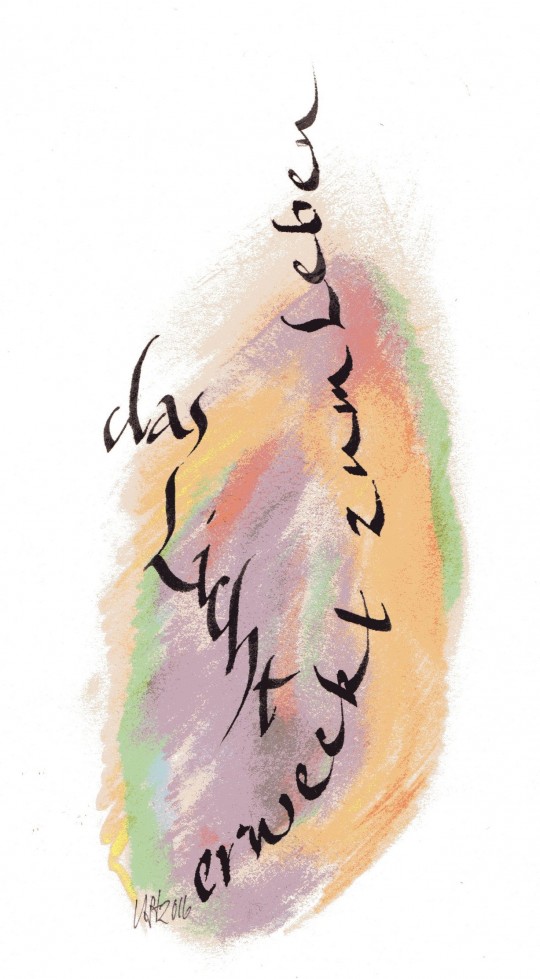 das
Licht
erweckt zum Leben
2016